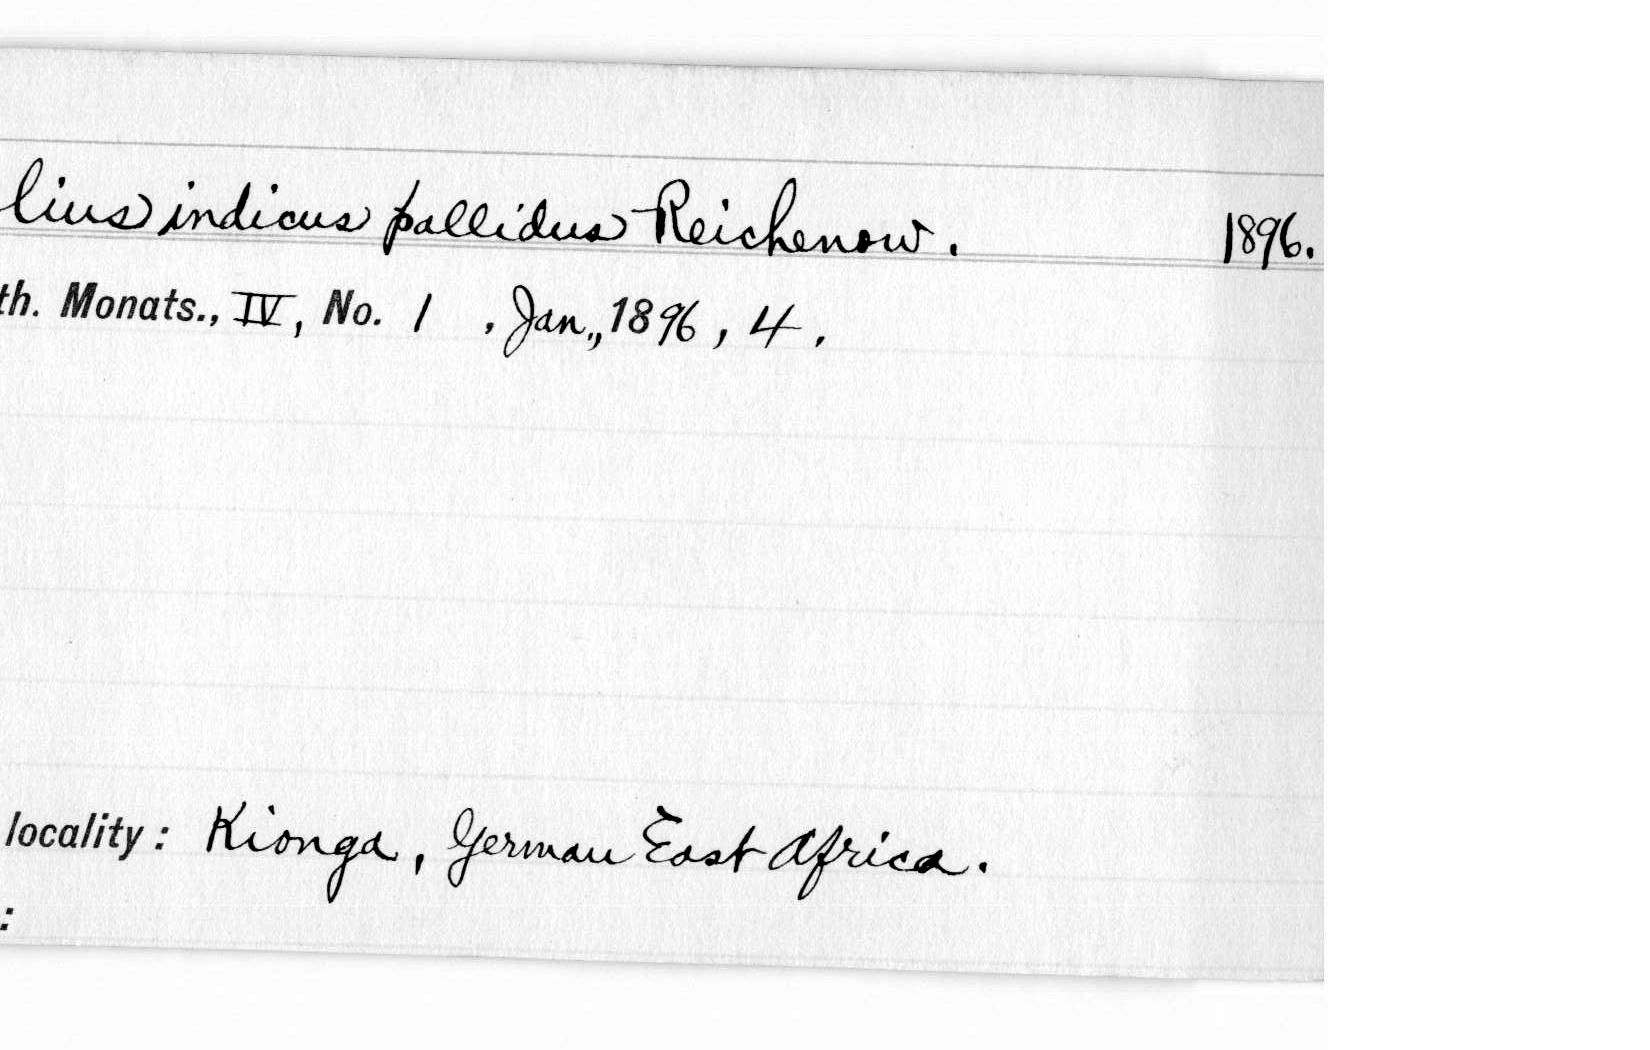 lius indicus pallidus Reichenow. 1896.
th. Monats., IV, No. 1 , Jan., 1896, 4.
locality: Kionga, German East Africa.
: